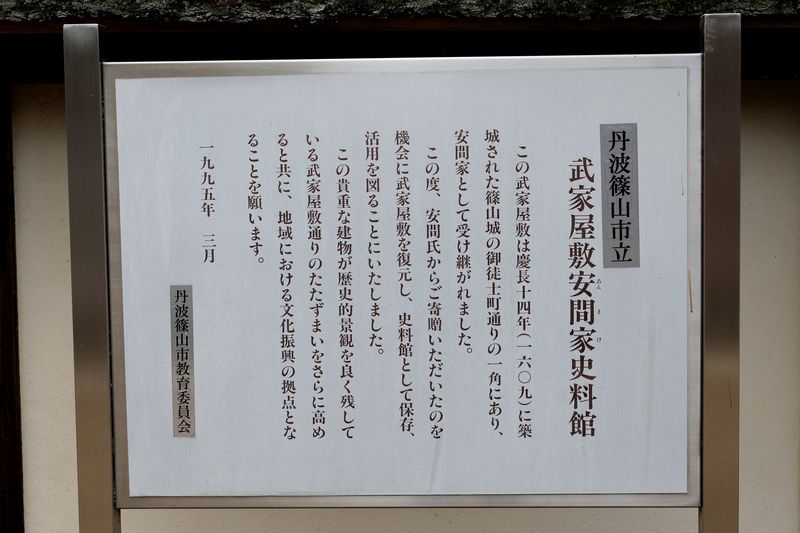 丹波篠山市立
武家屋敷安間家史料館
あんまけ
この武家屋敷は慶長十四年(一六〇九)に築
城された篠山城の御徒士町通りの一角にあり、
安間家として受け継がれました。
この度、安間氏からご寄贈いただいたのを
機会に武家屋敷を復元し、史料館として保存、
活用を図ることにいたしました。
この貴重な建物が歴史的景観を良く残して
いる武家屋敷通りのたたずまいをさらに高め
ると共に、地域における文化振興の拠点とな
ることを願います。
一九九五年 三月
丹波篠山市教育委員会